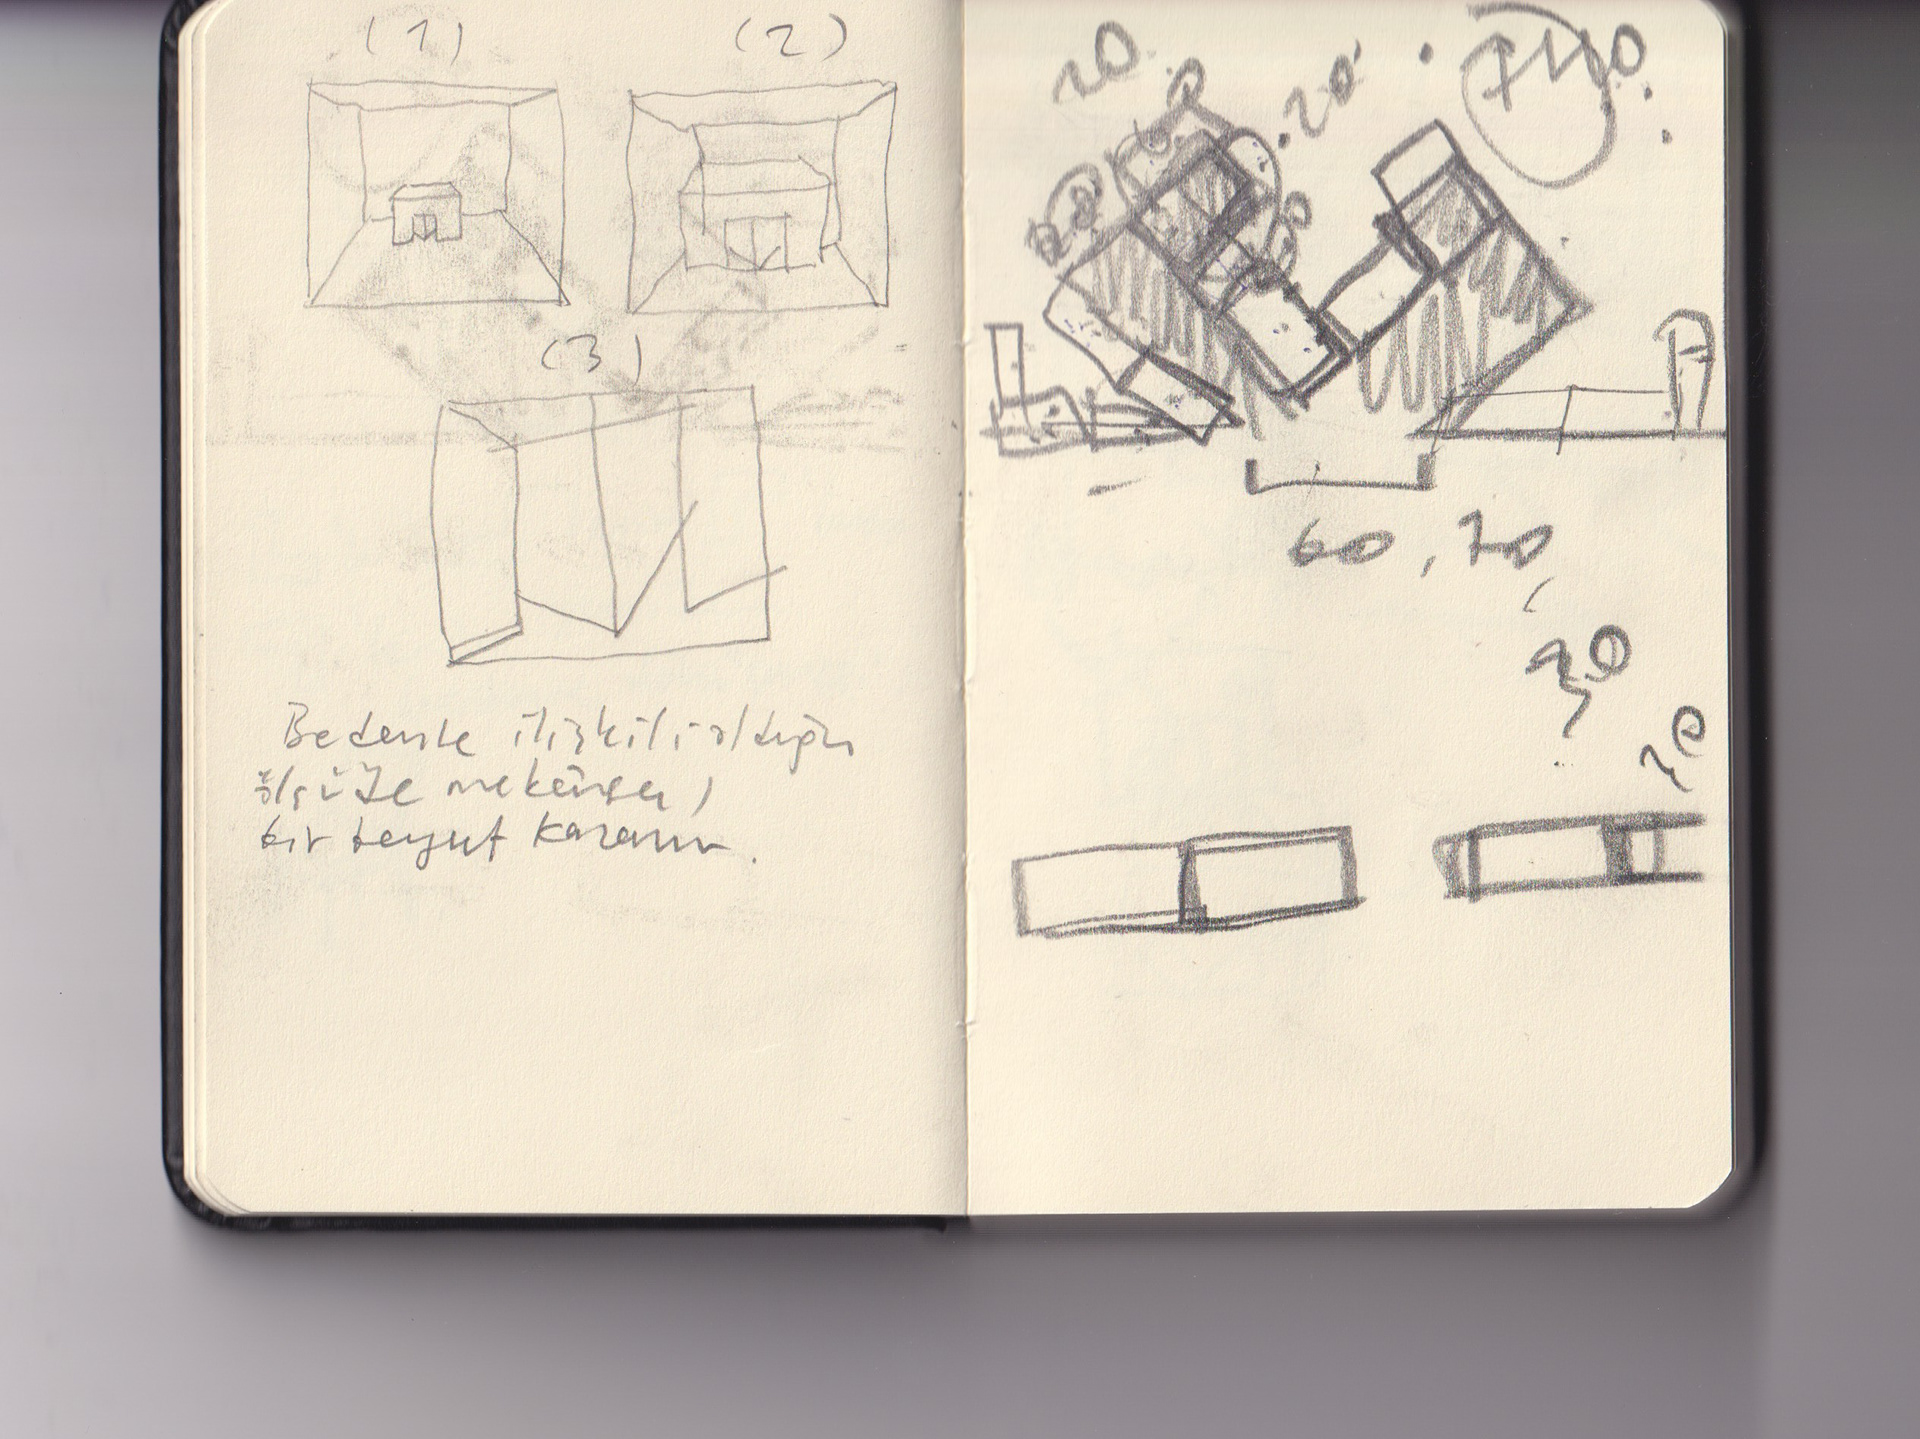 (1)
(2)
(3)
Bedenle ilişkili olduğu
ölçüde mekânsal
bir boyut kazanır.
20
20
60, 70,
90
70